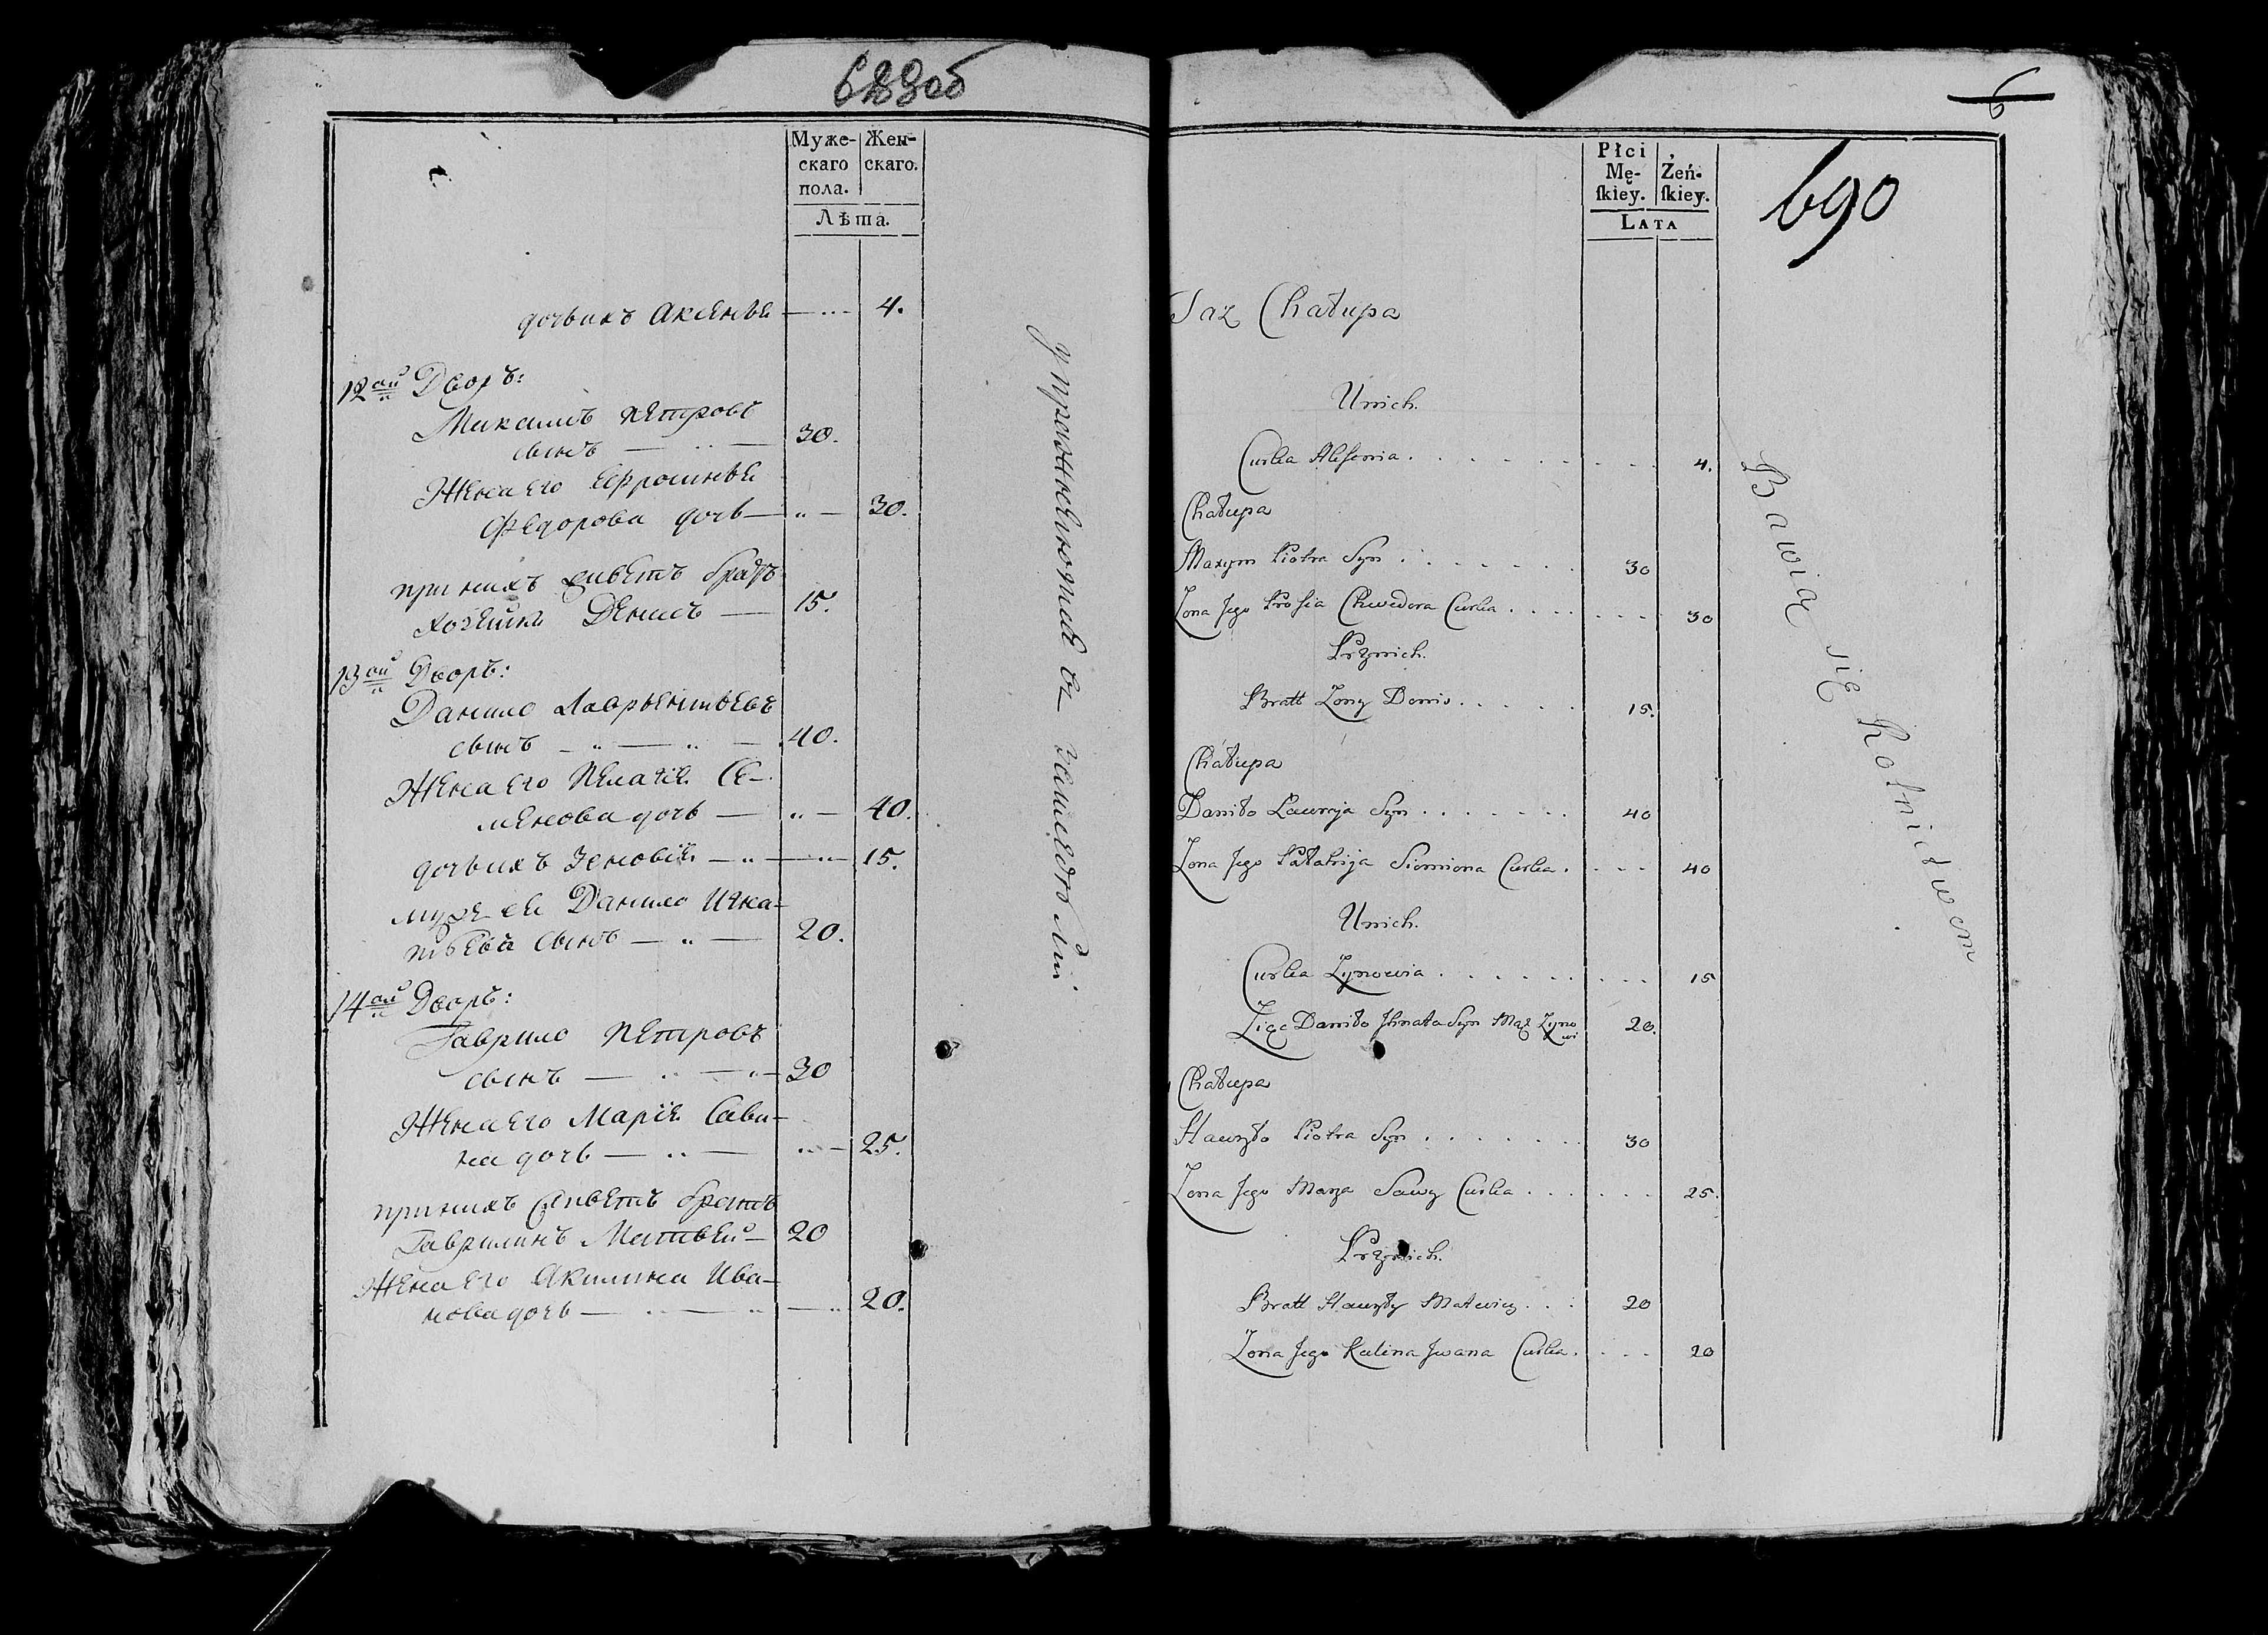 689об
Муже-
скаго
пола.
Жен-
скаго.
Лѣта.
дочь ихъ Аксенья 4.
12ой Дворъ:
Максимъ Петровъ
сынъ 30.
Жена его Ефросинья
Федорова дочь 30.
при нихъ живетъ братъ
хозяйки Денисъ 15.
13ой Дворъ:
Данило Лаврентьевъ
сынъ 40.
Жена его Пелагія Се-
менова дочь 40.
дочь ихъ Зеновія 15.
мужъ ея Данило Игна-
тьевъ сынъ 20.
14ой Дворъ:
Гаврило Петровъ
сынъ 30
Жена его Марія Сави-
на дочь 25.
при нихъ живетъ братъ
Гаврилинъ Матвей 20
Жена его Акилина Ива-
нова дочь 20.
упражняются въ
6
690
Płci
Mę-
ſkiey.
Żeń-
ſkiey.
LATA
Taż Chałupa
U nich.
Curka Aksenia 4.
Chałupa
Maxym Piotra Syn 30
Żona Jego Prosia Chwedora Curka 30
Przy nich.
Bratt Żony Denis 15.
Chałupa
Daniło Ławryja Syn 40
Żona Jego Pałahija Siemiona Curka 40
U nich.
Curka Zynowia 15
Zięć Daniło Ihnata Syn Mąż Zyno
wi 20.
Chałupa
Hawryło Piotra Syn 30
Żona Jego Marya Sawy Curka 25.
Przy nich.
Bratt Hawryły Matwiey 20
Żona Jego Kulina Jwana Curka 20
Bawią się Rolnictwem